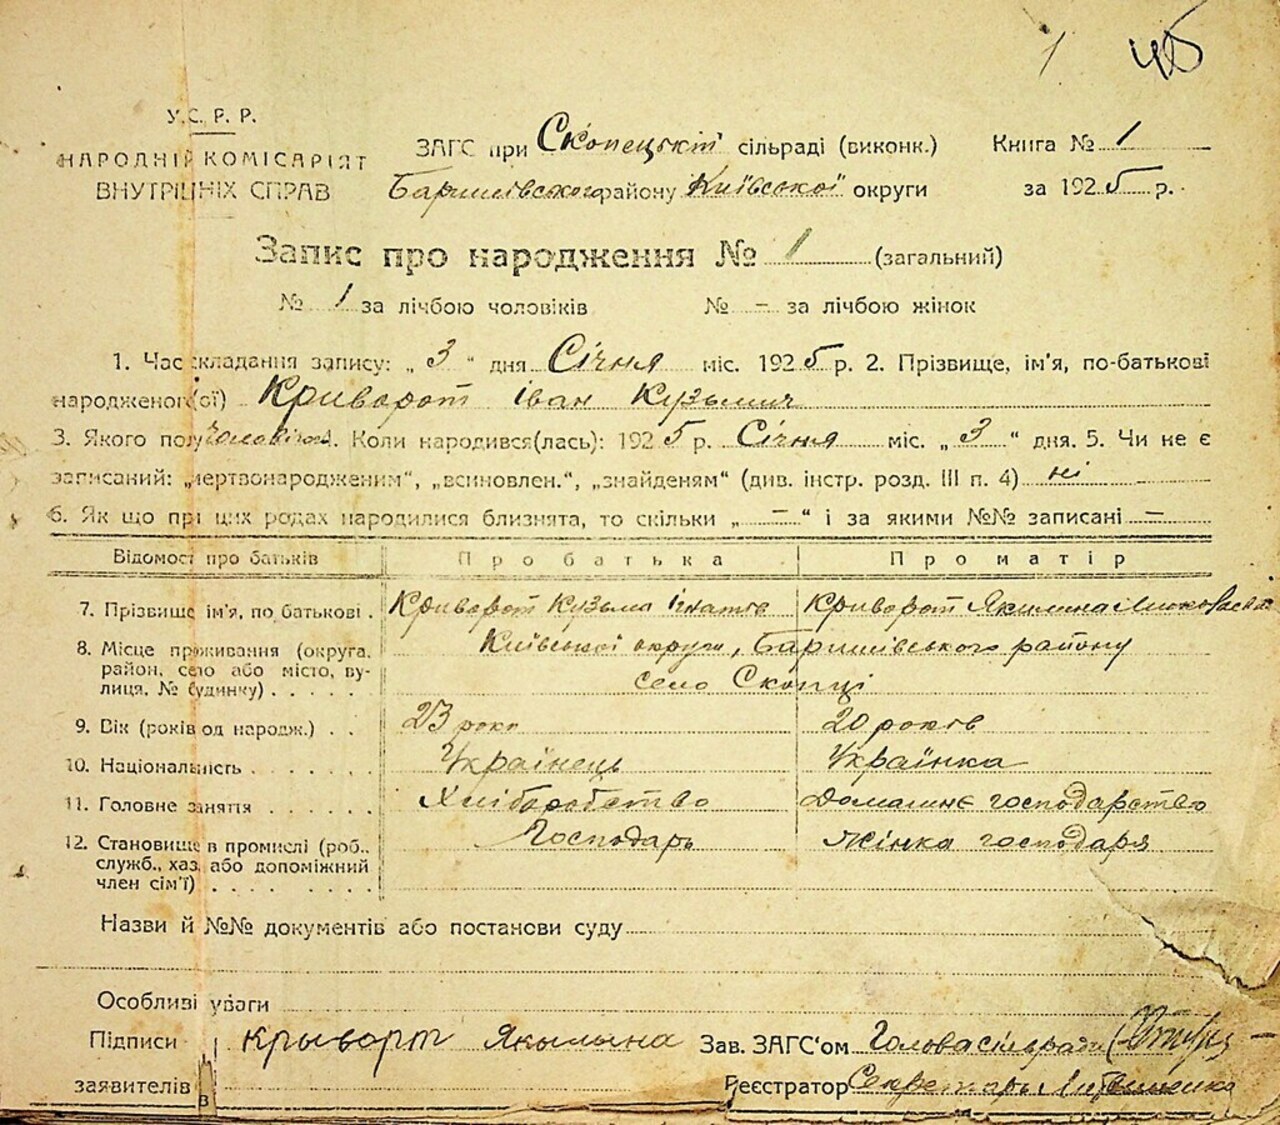 1 45
У.С.Р.Р.
НАРОДНІЙ КОМІСАРІЯТ
ВНУТРІШНІХ СПРАВ
ЗАГС при Скопецькій сільраді (виконк.) Книга № 1
Баришівського району Київської округи за 1925 р.
Запис про народження № 1 (загальний)
№ 1 за лічбою чоловіків № – за лічбою жінок
1. Час складання запису: „3“ дня Січня міс. 1925 р. 2. Прізвище, ім'я, по-батькові
народженого(ої) Криворот Іван Кузьмич
3. Якого полу чоловічої 4. Коли народився(лась): 1925 р. Січня міс. „3“ дня. 5. Чи не є
записаний: „мертвонародженим“, „всиновлен.“, „знайденям“ (див. інстр. розд. III п. 4) ні
6. Як що прі цих родах народилися близнята, то скільки „–“ і за якими №№ записані –
Відомост про батьків Про батька Про матір
7. Прізвище ім'я, по батькові. Криворот Кузьма Ігнатів Криворот Якилина Миколаєва
8. Місце проживання (округа, район, село або місто, вулиця, № будинку) Київської округи, Баришівського району
село Скопці
9. Вік (років од народж.) 23 роки 20 років
10. Національність Українець Українка
11. Головне заняття Хліборобство Домашнє господарство
12. Становище в промислі (роб., Господарь Жінка господаря
служб., хаз. або допоміжний
член сім'ї)
Назви й №№ документів або постанови суду
Особливі уваги
Підписи Криворт Якылына Зав. ЗАГС'ом Голова сільради
заявителів Реєстратор Секретарь Литвиненко